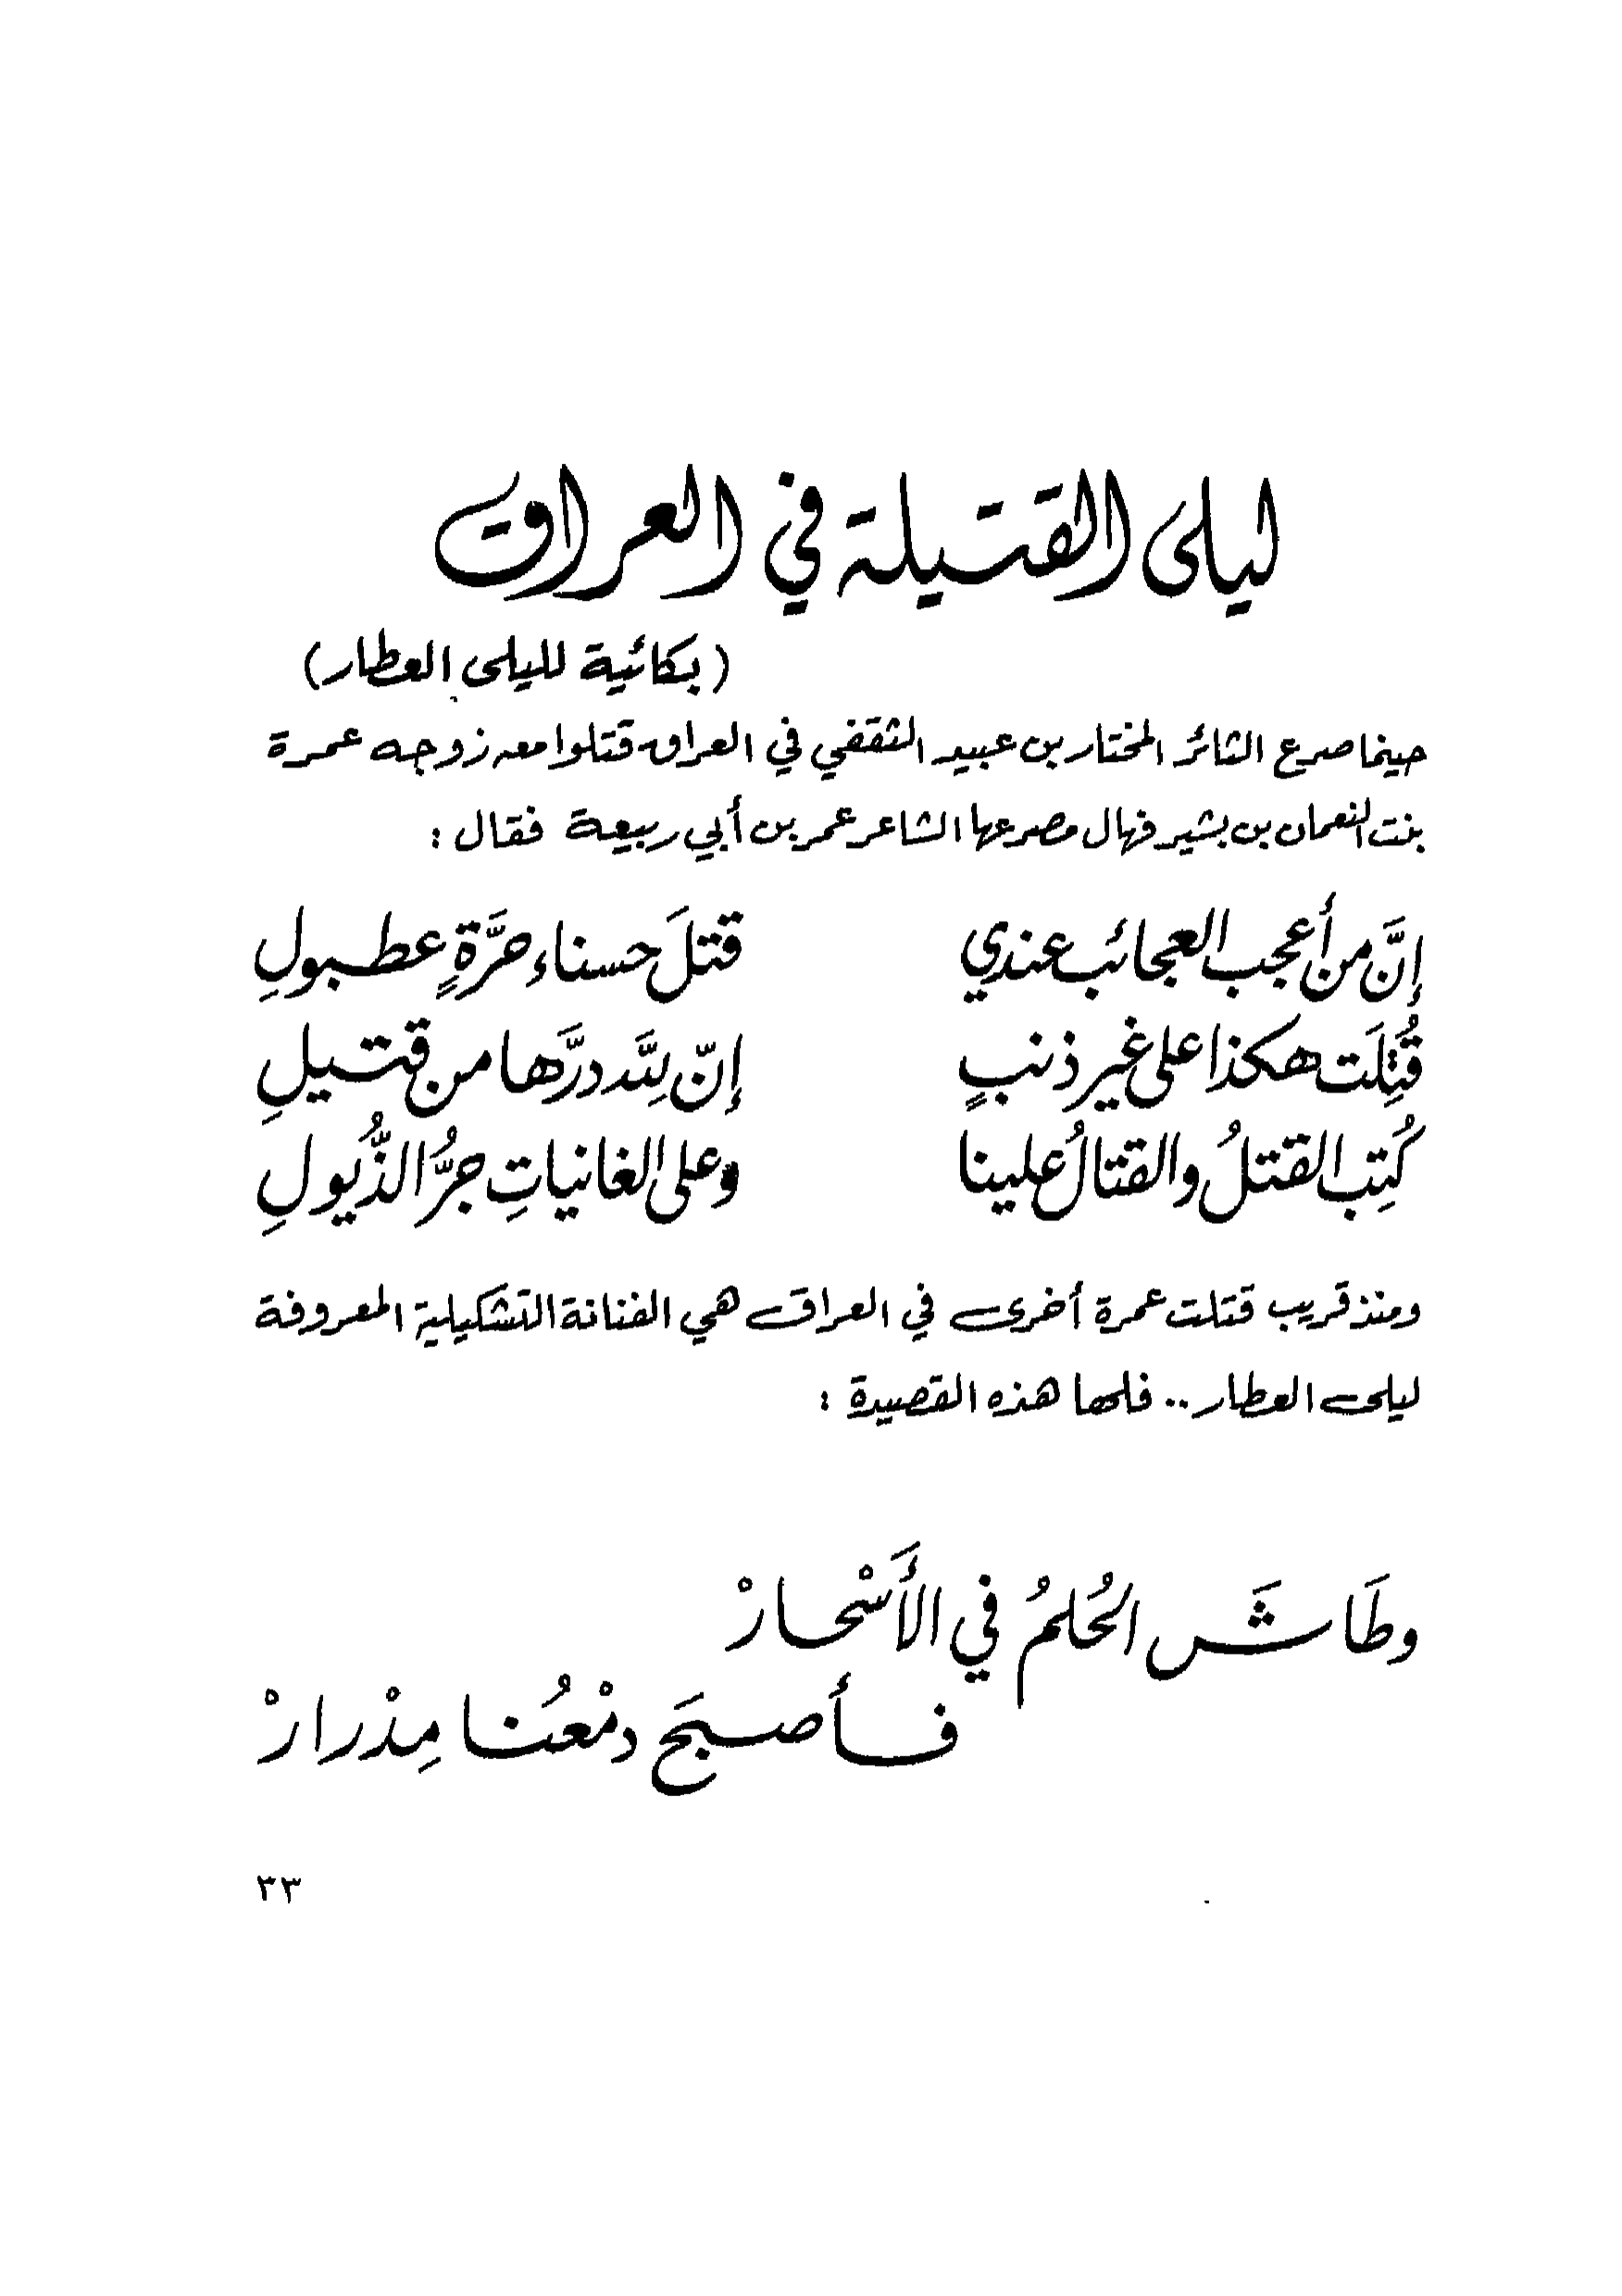 ليلى القتيلة في العراق
(بكائية لليلى العطار)
حينما صرع الثائر المختار بن عبيد الثقفي في العراق قتلوا معه زوجه عمرة
بنت النعمان بن بشير فهال مصرعها الشاعر عمر بن أبي ربيعة فقال :
إنَّ من أعجب العجائب عندي قتلَ حسناء حرَّةٍ عطبولِ
قُتِلَت هكذا على غير ذنبٍ إنّ لِلَّه درَّها من قتيلِ
كُتِب القتلُ والقتالُ علينا وعلى الغانياتِ جرُّ الذُّيولِ
ومنذ قريب قتلت عمرة أخرى في العراق هي الفنانة التشكيلية المعروفة
ليلى العطار .. فلها هذه القصيدة :
وطَاشَ الحُلمُ في الأَسْحارْ
فأصبحَ دمْعُنا مِدْرارْ
٣٣